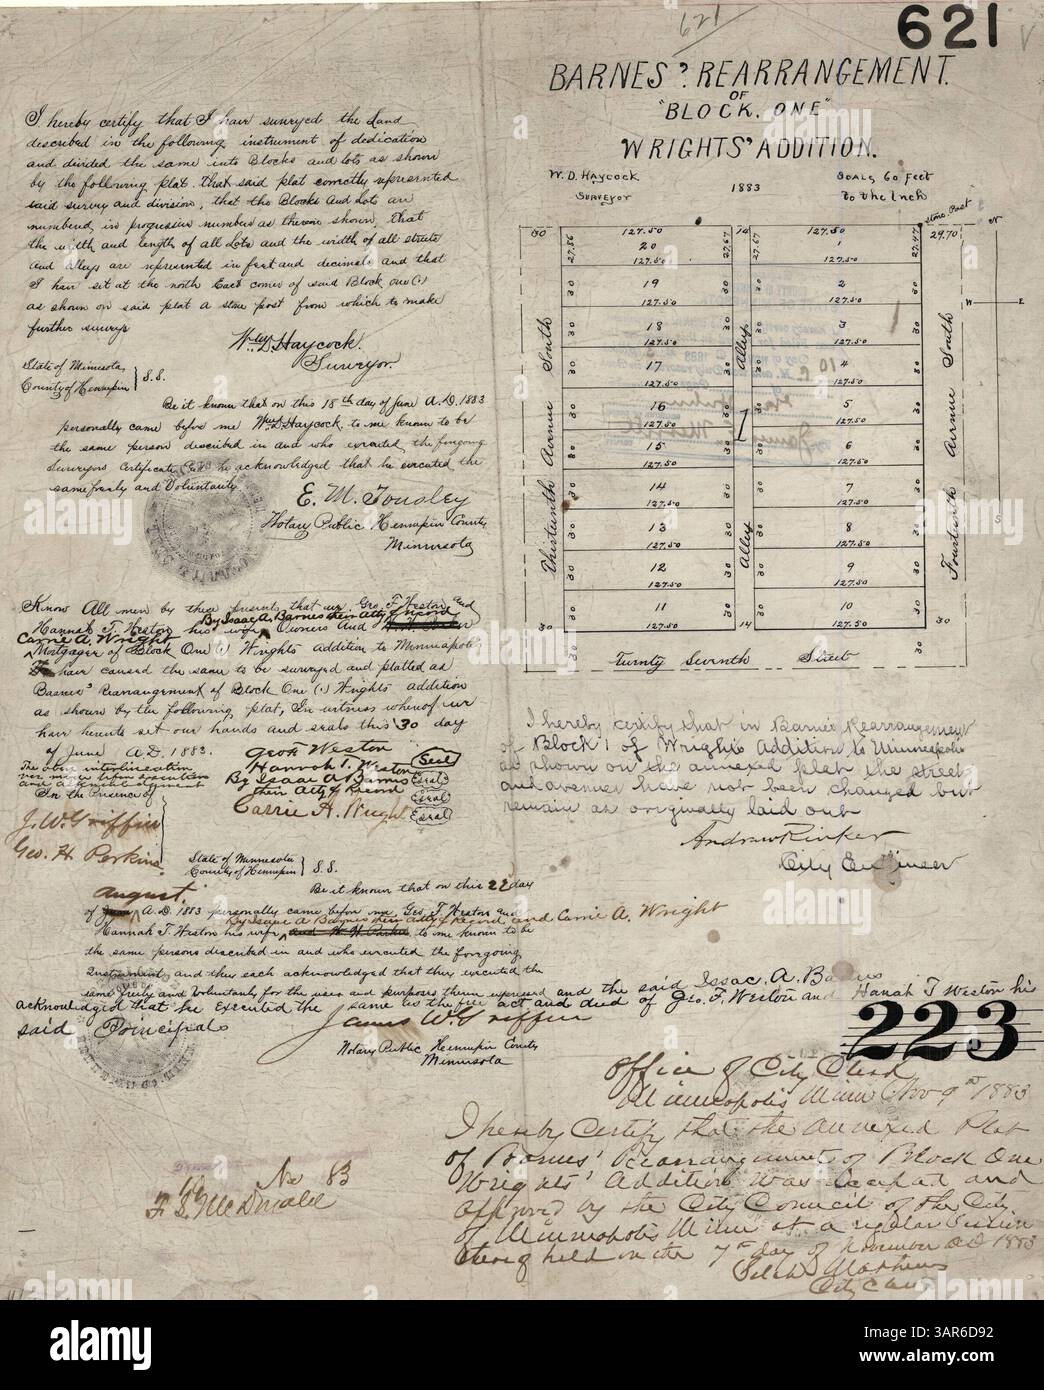 621
621
BARNES' REARRANGEMENT.
OF
"BLOCK. ONE"
WRIGHTS' ADDITION.
W. D. HAYCOCK
SURVEYOR
1883
SCALE 60 FEET
To the Inch
I hereby certify that I have surveyed the Land
described in the following instrument of dedication
and divided the same into Blocks and lots as shown
by the following plat. that said plat correctly represented
said survey and division, that the Blocks and Lots are
numbered in progressive numbers as therein shown, that
the width and length of all Lots and the width of all streets
and alleys are represented in feet and decimals and that
I have set at the north East corner of said Block one (1)
as shown on said plat a stone post from which to make
further surveys
Wm D Haycock.
Surveyor.
State of Minnesota,
County of Hennepin } S.S.
Be it known that on this 18th day of June A.D. 1883
personally came before me Wm D Haycock to me known to be
the same person described in and who executed the foregoing
Surveyors Certificate and he acknowledged that he executed the
same freely and Voluntarily
E. M. Tousley
Notary Public Hennepin County
Minnesota
Know All men by these present that we, Geo. F. Weston and
By Isaac A. Barnes their Atty of record
Hannah T. Weston his wife Owners and
Carrie A. Wright
Mortgager of Block One (1) Wrights Addition to Minneapolis
have caused the same to be surveyed and platted as
Barnes' Rearrangement of Block One (1) Wrights addition
as shown by the following plat, In witness whereof we
have hereunto set our hands and seals this 30 day
of June A.D. 1883.
The above interlineation
was made before execution
and acknowledgment
In the presence of
J. W. Griffin
Geo. H. Perkins
Geo F Weston Seal
Hannah T. Weston Seal
By Isaac A Barnes
their Atty of Record Seal
Carrie A. Wright Seal
State of Minnesota
County of Hennepin } S.S.
Be it known that on this 22 day
August.
of A.D. 1883 personally came before me Geo. F. Weston and
By Isaac A Barnes their Atty of Record and Carrie A. Wright
Hannah T. Weston his wife to me known to be
the same persons described in and who executed the foregoing
Instrument and they each acknowledged that they executed the
same freely and Voluntarily for the uses and purposes therein expressed and the said Isaac. A. Barnes
acknowledged that he executed the same as the free act and deed of Geo. F. Weston and Hanah T Weston his
said Principals
James W. Griffin
Notary Public Hennepin County
Minnesota
No 83
F. S. McDonald
Stone Post
30 127.50 14 127.50 29.70
27.86 20 27.67 27.67 1 27.47
127.50
30 19 30 30 2 30
127.50 127.50
30 18 30 3 30
127.50 127.50
30 17 4 30
127.50 127.50
30 16 30 5 30
127.50 127.50
30 15 6 30
127.50 127.50
30 14 30 30 7 30
127.50 127.50
30 13 30 30 8 30
127.50 127.50
30 12 30 30 9 30
127.50 127.50
30 11 30 30 10 30
30 127.50 14 127.50 30
Alley
1
Alley
Thirteenth Avenue South
Fourteenth Avenue South
Twenty Seventh Street
N
W E
S
I hereby certify that in Barnes Rearrangement
of Block 1 of Wright's Addition to Minneapolis
as shown on the annexed plat the streets
and avenues have not been changed but
remain as originally laid out
Andrew Rinker
City Engineer
223
Office of City Clerk
Minneapolis Minn Nov 9th 1883
I hereby Certify that the annexed Plat
of Barnes' Rearrangement of Block One
Wrights' Addition was accepted and
approved by the City Council of the City
of Minneapolis Minn at a regular session
thereof held on the 7th day of November AD 1883
Selah Mathews
City Clerk
alamy
Image ID: 3AR6D92
www.alamy.com